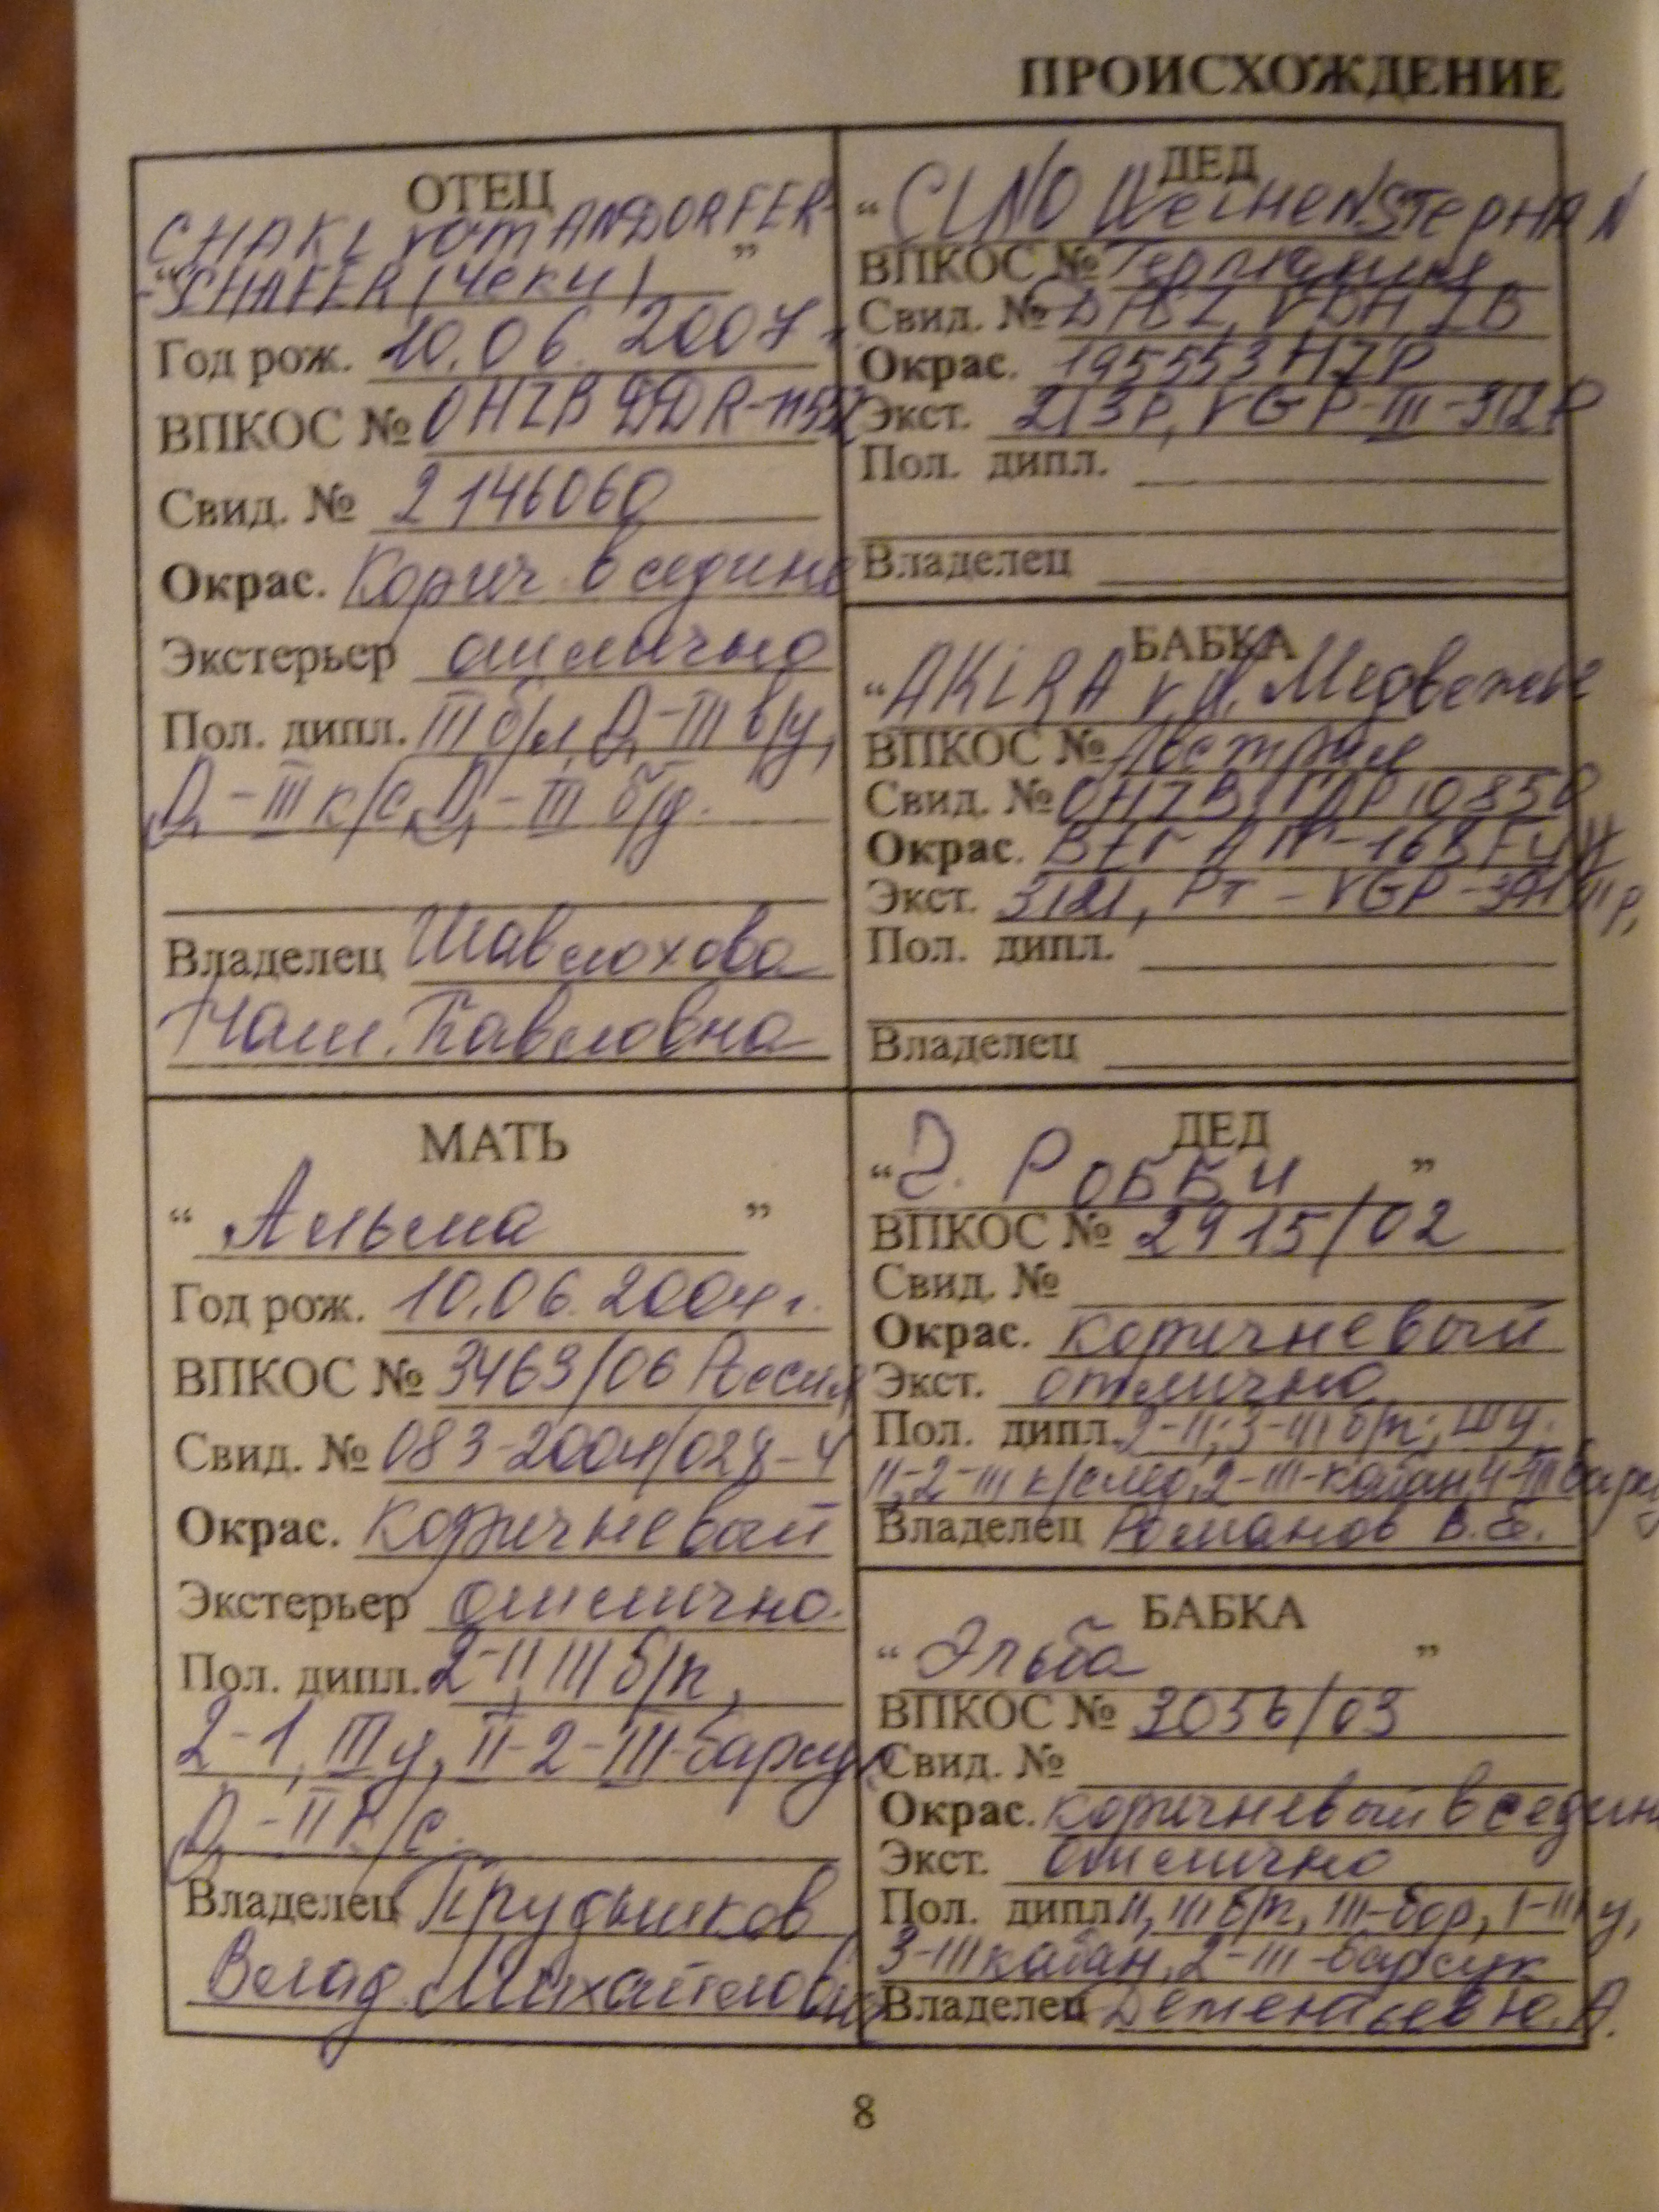 ПРОИСХОЖДЕНИЕ
ОТЕЦ
CHAKL vom ANDORFER-
“-SCHAFER (Чеки)”
Год рож. 10.06.2007
ВПКОС № OHZB DDR-
Свид. № 2146060
Окрас. Корич в седине
Экстерьер отлично
Пол. дипл. III б/л, Д-III в/у,
Д-III к/с, Д-III б/д.
Владелец Шавлохова
Нат. Павловна
ДЕД
“CLNO WeiHENSTepHAN
ВПКОС № Германия
Свид. № VDH ZB
Окрас. 195553 HZP
Экст. 213P, VGP-III-312P
Пол. дипл.
Владелец
БАБКА
“AKiRA v.d. Медвежье
ВПКОС № Австрия
Свид. № OHZB 10850
Окрас.
Экст. VGP
Пол. дипл.
Владелец
МАТЬ
“Альма”
Год рож. 10.06.2004г.
ВПКОС № 3463/06 Россия
Свид. № 083-2004/028-4
Окрас. коричневый
Экстерьер отлично.
Пол. дипл. 2-II, III б/п,
2-1, III у, II-2-III-барсук
Д-II к/с.
Владелец Прудников
Влад. Михайлович
ДЕД
“Э. РОББИ”
ВПКОС № 2915/02
Свид. №
Окрас. коричневый
Экст. отлично
Пол. дипл. 2-II; 3-III б/п; III у.
II-2-III к/след, 2-III-кабан, 4-III барсу
Владелец Романов В.Б.
БАБКА
“Эльба”
ВПКОС № 3056/03
Свид. №
Окрас. коричневый в седин
Экст. отлично
Пол. дипл. II, III б/п, III-бор, 1-III у,
3-III кабан, 2-III-барсук
Владелец Дементьев Ю.А.
8